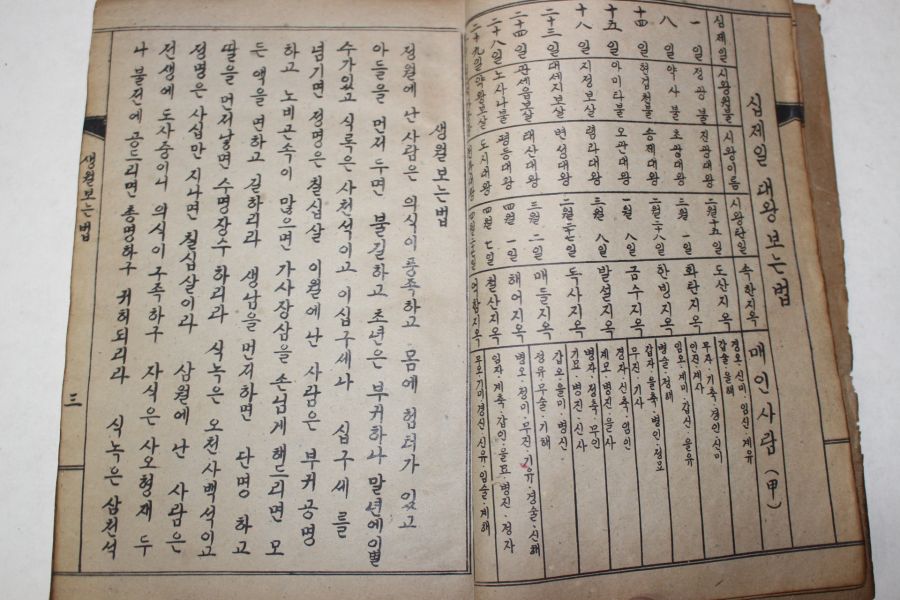 십제일 대왕보는법 매인사람 (甲)
십제일 시왕원불 시왕이름 시왕탄일 속한지옥
一 일 정광불 진광대왕 二월十五일 도산지옥 경오·신미·임신·계유 갑술·을해
八 일 약사불 초광대왕 三월 一일 화탄지옥 무자·기축·경인·신미 인진·계사
十四 일 현겁천불 송제대왕 二월二十八일 한빙지옥 임오·계미·갑신·을유 병술·정해
十五 일 아미타불 오관대왕 一월 八일 금수지옥 갑자·을축·병인·정묘 무진·기사
十八 일 지정보살 렴라대왕 三월 八일 발설지옥 경자·신축·임인 계묘·병진·을사
二十三 일 대세지보살 변성대왕 二월二七일 독사지옥 병자·정축·무인 기묘·병진·신사
二十四 일 관세음보살 태산대왕 三월 二일 매들지옥 갑오·을미·병신· 정유·무술·기해
二十八 일 노사나불 평등대왕 四월 一일 해어지옥 병오·정미·무진·기유·경술·신해
二十九일 약왕보살 도시대왕 四월 七일 철산지옥 임자·계축·갑인·을묘·병진·정자
무오·기미·경신·신유·임술·계해
생월보는법
정월에 난 사람은 의식이 풍족하고 몸에 험터가 있고
아들을 먼저 두면 불길하고 초년은 부귀하나 말년에이별
수가있고 식록은 사천석이고 이십구세나 십구세를
넘기면 정명은 칠십살 이월에 난 사람은 부귀공명
하고 노비곤속이 많으면 가사장삼을 손님게 해드리면 모
든 액을 면하고 길하리라 생남을 먼저하면 단명하고
딸을 먼저낳면 수명장수 하리라 식녹은 오천사백석이고
정명은 사십만 지나면 칠십살이라 삼월에 난 사람은
전생에 도사중이니 의식이구족하구 자식은 사오형재 두
나 불전에 공드리면 총명하구 귀히되리라 식녹은 삼천석
생월보는법
三